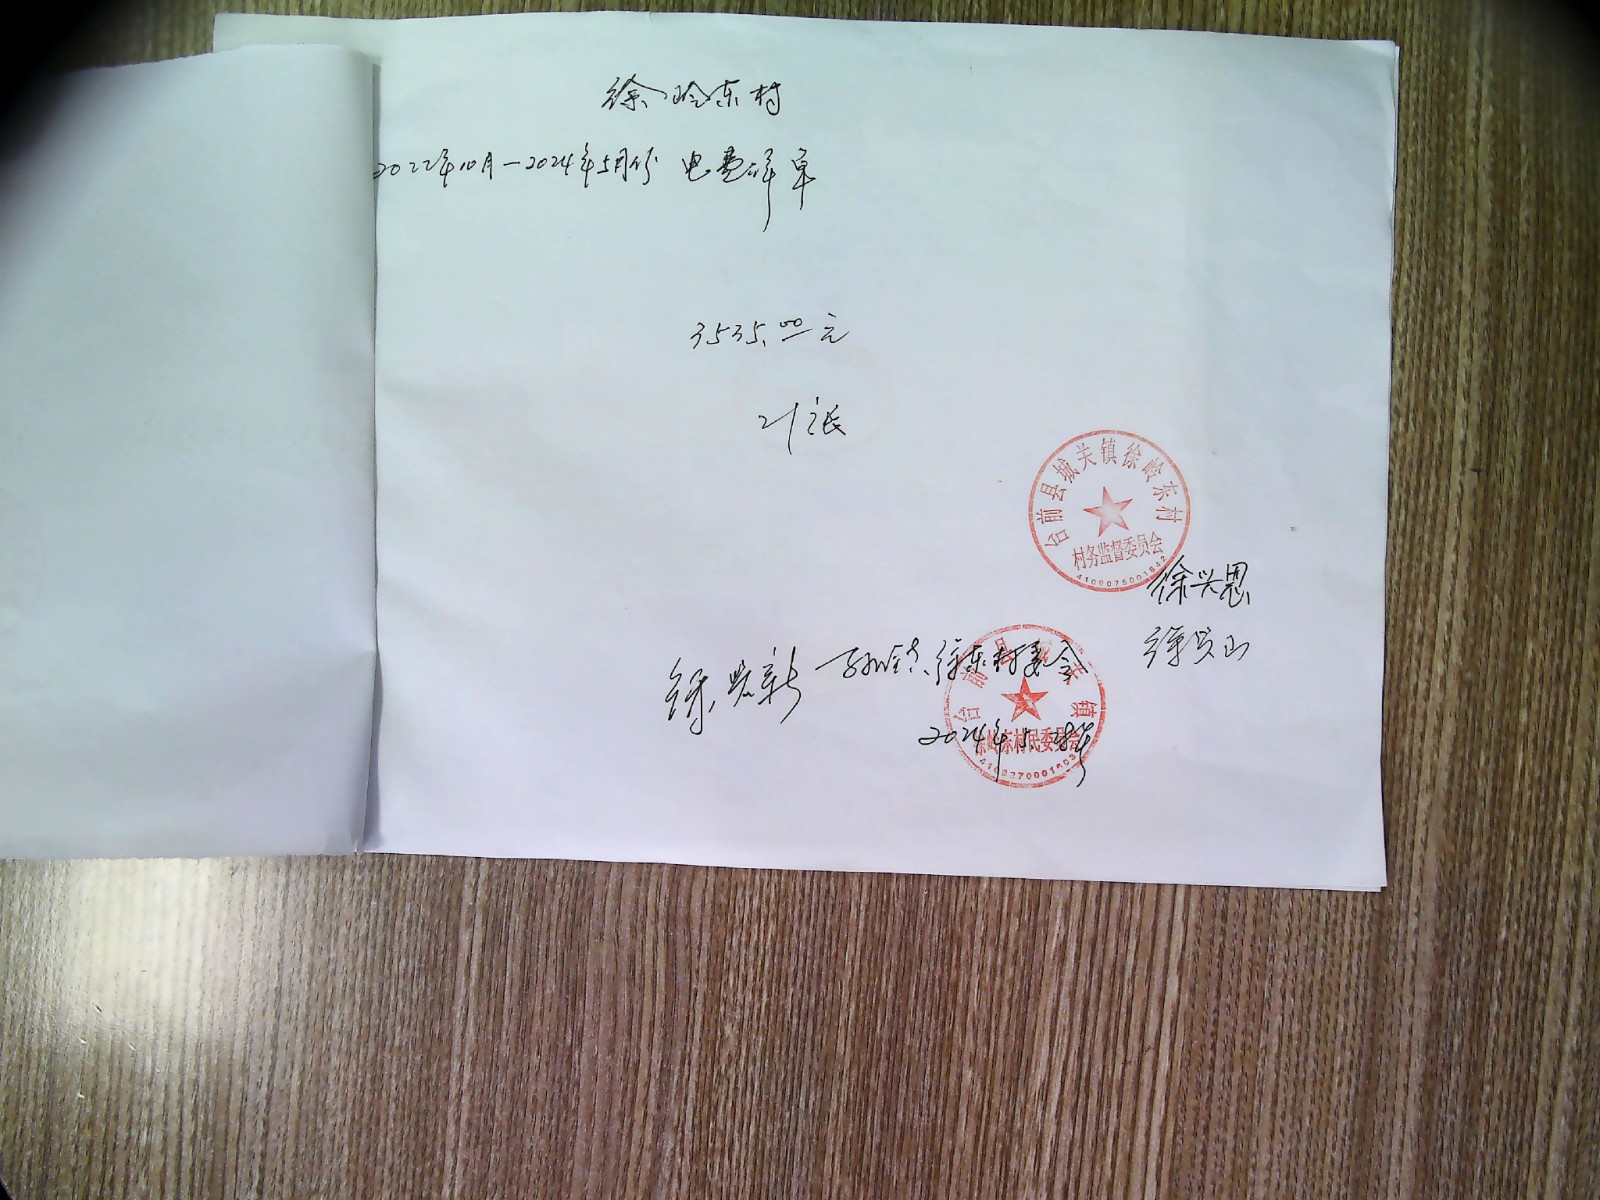 徐岭东村
2022年10月—2024年5月份 电费详单
3535.00元
21张
台前县城关镇徐岭东村
村务监督委员会
4100075001642
徐兴恩
徐岭东村委会
台前县城关镇
徐岭东村民委员会
2024年